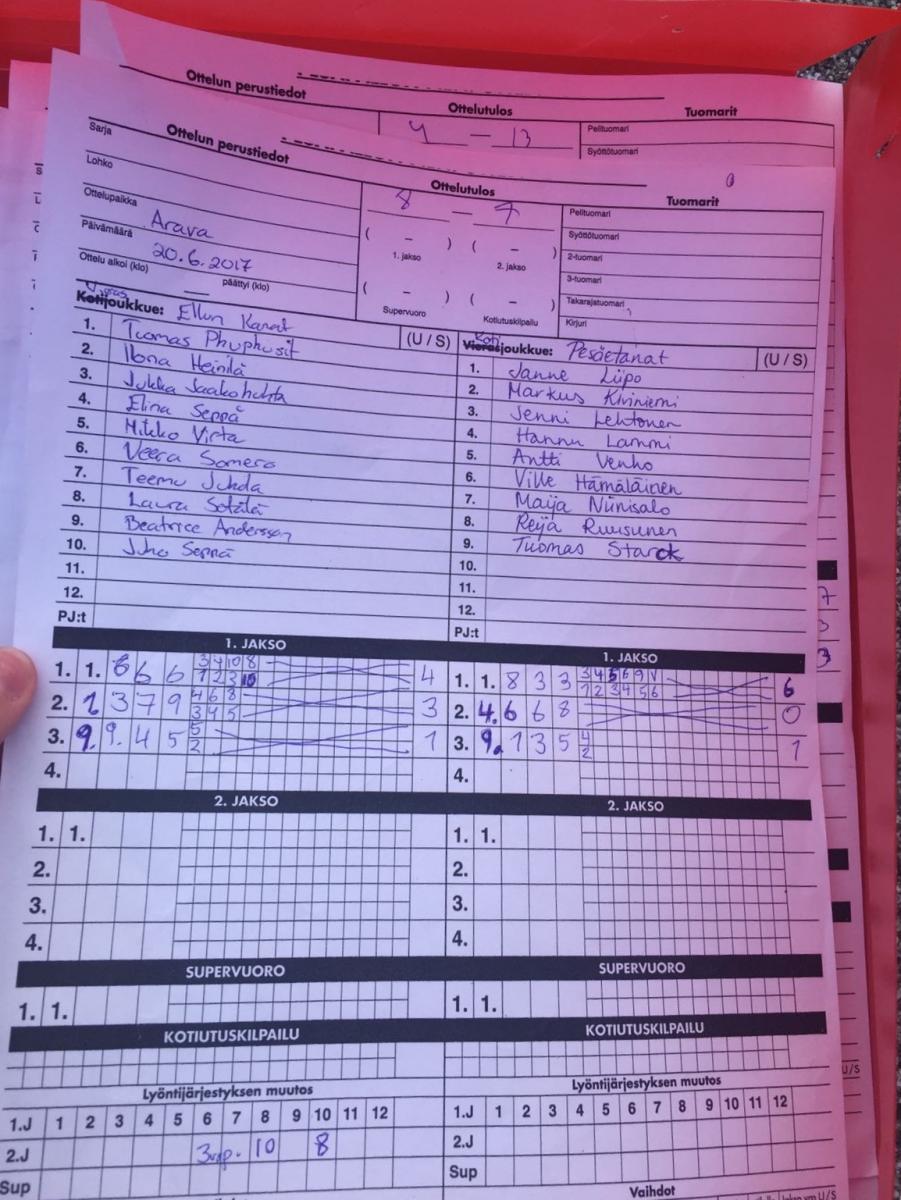 Ottelun perustiedot
Ottelutulos
Tuomarit
4 — 13
Pelituomari
Syöttötuomari
Ottelun perustiedot
Ottelutulos
Tuomarit
Sarja
Lohko
Ottelupaikka Arava
Päivämäärä 20.6.2017
Ottelu alkoi (klo) päättyi (klo)
8 — 7
( – ) ( – )
1. jakso 2. jakso
( – ) ( – )
Supervuoro Kotiutuskilpailu
Pelituomari
Syöttötuomari
2-tuomari
3-tuomari
Takarajatuomari
Kirjuri
Vieras
Kotijoukkue: Ellun Kanat (U / S)
1. Tuomas Phuphusit
2. Ilona Heinilä
3. Jukka Jaakohuhta
4. Elina Seppä
5. Mikko Virta
6. Veera Somero
7. Teemu Juhda
8. Laura Sotälä
9. Beatrice Andersson
10. Juho Seppä
11.
12.
PJ:t
Koti
Vierasjoukkue: Pesäetanat (U / S)
1. Janne Liipo
2. Markus Kiviniemi
3. Jenni Lehtonen
4. Hannu Lammi
5. Antti Venho
6. Ville Hämäläinen
7. Maija Niinisalo
8. Reija Ruusunen
9. Tuomas Starck
10.
11.
12.
PJ:t
1. JAKSO
1. 1. 6 6 6 3 4 10 8 4
1 2 3 10
2. 1 3 7 9 4 6 8 3
3 4 5
3. 9. 9. 4 5 5 1
2
4.
1. JAKSO
1. 1. 8 3 3 3 4 5 6 9 V 6
1 2 3 4 5 6
2. 4. 6 6 8 0
3. 9. 1 3 5 4 1
2
4.
2. JAKSO
1. 1.
2.
3.
4.
2. JAKSO
1. 1.
2.
3.
4.
SUPERVUORO
1. 1.
SUPERVUORO
1. 1.
KOTIUTUSKILPAILU
KOTIUTUSKILPAILU
Lyöntijärjestyksen muutos
1.J 1 2 3 4 5 6 7 8 9 10 11 12
2.J 3vp. 10 8
Sup
Lyöntijärjestyksen muutos
1.J 1 2 3 4 5 6 7 8 9 10 11 12
2.J
Sup
Vaihdot
U/S